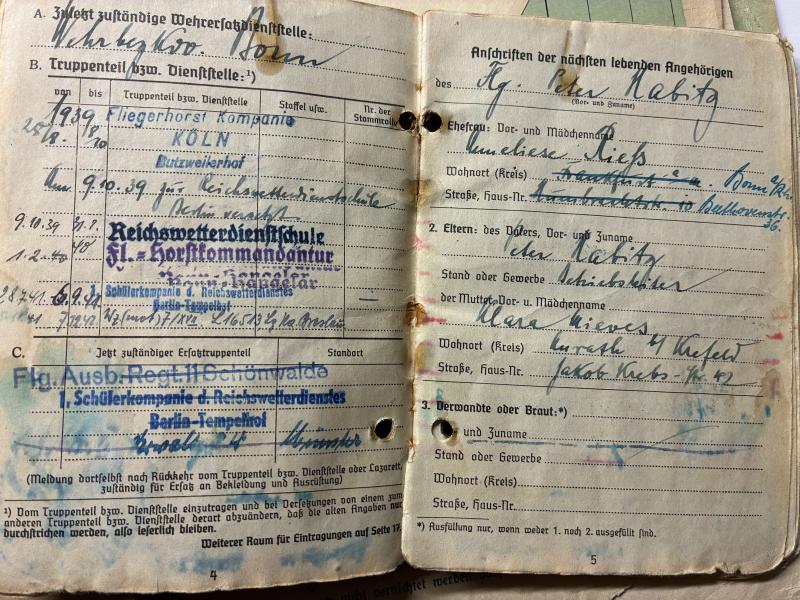 A. Zuletzt zuständige Wehrersatzdienststelle:
Wehrbezkdo. Bonn
B. Truppenteil bzw. Dienststelle:¹)
von bis Truppenteil bzw. Dienststelle Staffel usw. Nr. der Stammrolle
1939 Fliegerhorst Kompanie
KÖLN
Butzweilerhof
Am 9.10.39 zur Reichswetterdienstschule
Berlin versetzt.
9.10.39 Reichswetterdienstschule
1.2.40 Fl.-Horstkommandantur
28.7.41 6.9.41 1. Schülerkompanie d. Reichswetterdienstes
Berlin-Tempelhof
C. Jetzt zuständiger Ersatztruppenteil Standort
Flg. Ausb. Regt. 11 Schönwalde
1. Schülerkompanie d. Reichswetterdienstes
Berlin-Tempelhof
Münster
(Meldung dortselbst nach Rückkehr vom Truppenteil bzw. Dienststelle oder Lazarett,
zuständig für Ersatz an Bekleidung und Ausrüstung)
¹) Vom Truppenteil bzw. Dienststelle einzutragen und bei Versetzungen von einem zum
anderen Truppenteil bzw. Dienststelle derart abzuändern, daß die alten Angaben nur
durchstrichen werden, also leserlich bleiben.
Weiterer Raum für Eintragungen auf Seite 17.
4
Anschriften der nächsten lebenden Angehörigen
des Flg. Peter Nabitz
(Vor- und Zuname)
Ehefrau: Vor- und Mädchenname
Anneliese Rieß
Wohnort (Kreis) Frankfurt a. M. Bonn a/Rh.
Straße, Haus-Nr. Beethovenstr. 36.
2. Eltern: des Vaters, Vor- und Zuname
Peter Nabitz
Stand oder Gewerbe Betriebsleiter
der Mutter, Vor- u. Mädchenname
Klara Mieves
Wohnort (Kreis) Anrath b/ Krefeld
Straße, Haus-Nr. Jakob Krebs-Str. 42
3. Verwandte oder Braut:*)
und Zuname
Stand oder Gewerbe
Wohnort (Kreis)
Straße, Haus-Nr.
*) Ausfüllung nur, wenn weder 1. noch 2. ausgefüllt sind.
5